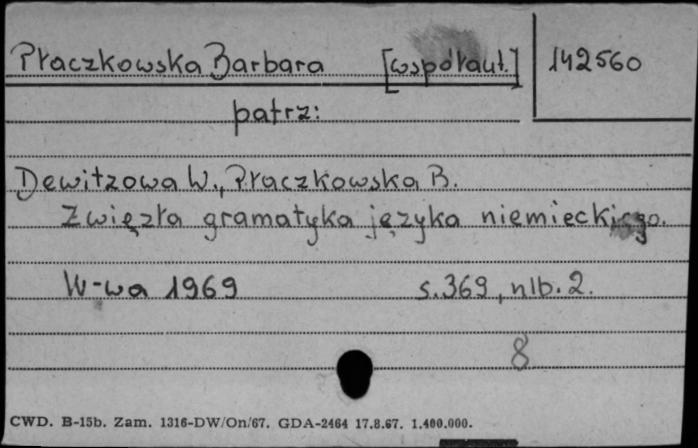 Płaczkowska Barbara [współaut.] 142560
patrz:
Dewitzowa W., Płaczkowska B.
Zwięzła gramatyka języka niemieckiego.
W-wa 1969 s.369, nlb. 2.
8
CWD. B-15b. Zam. 1316-DW/On/67. GDA-2464 17.8.67. 1.400.000.